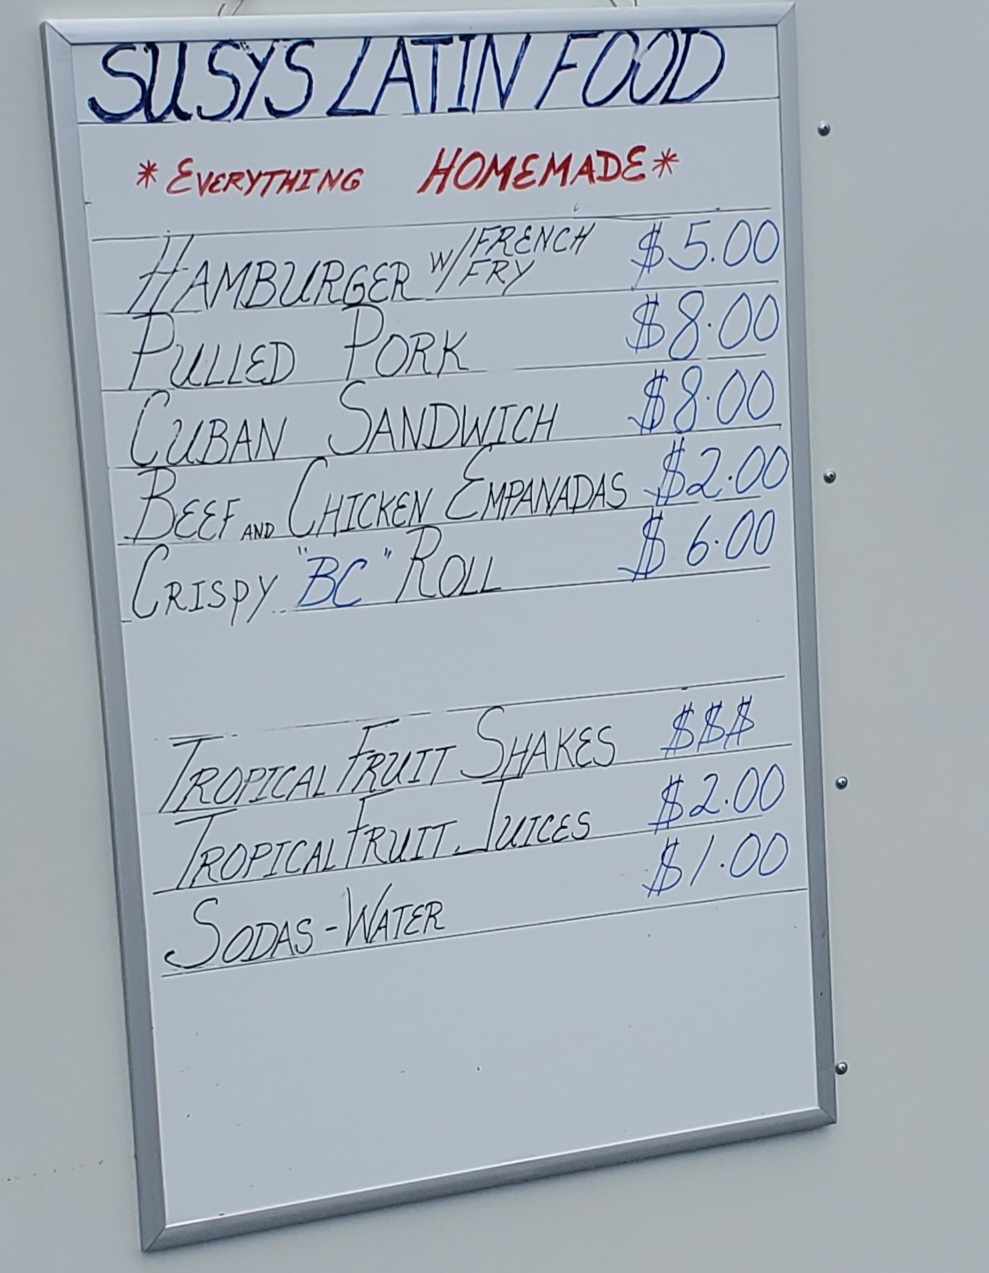 SUSYS LATIN FOOD
*EVERYTHING HOMEMADE*
HAMBURGER W/FRENCH FRY $5.00
PULLED PORK $8.00
CUBAN SANDWICH $8.00
BEEF AND CHICKEN EMPANADAS $2.00
CRISPY "BC" ROLL $6.00
TROPICAL FRUIT SHAKES $$$
TROPICAL FRUIT JUICES $2.00
SODAS-WATER $1.00